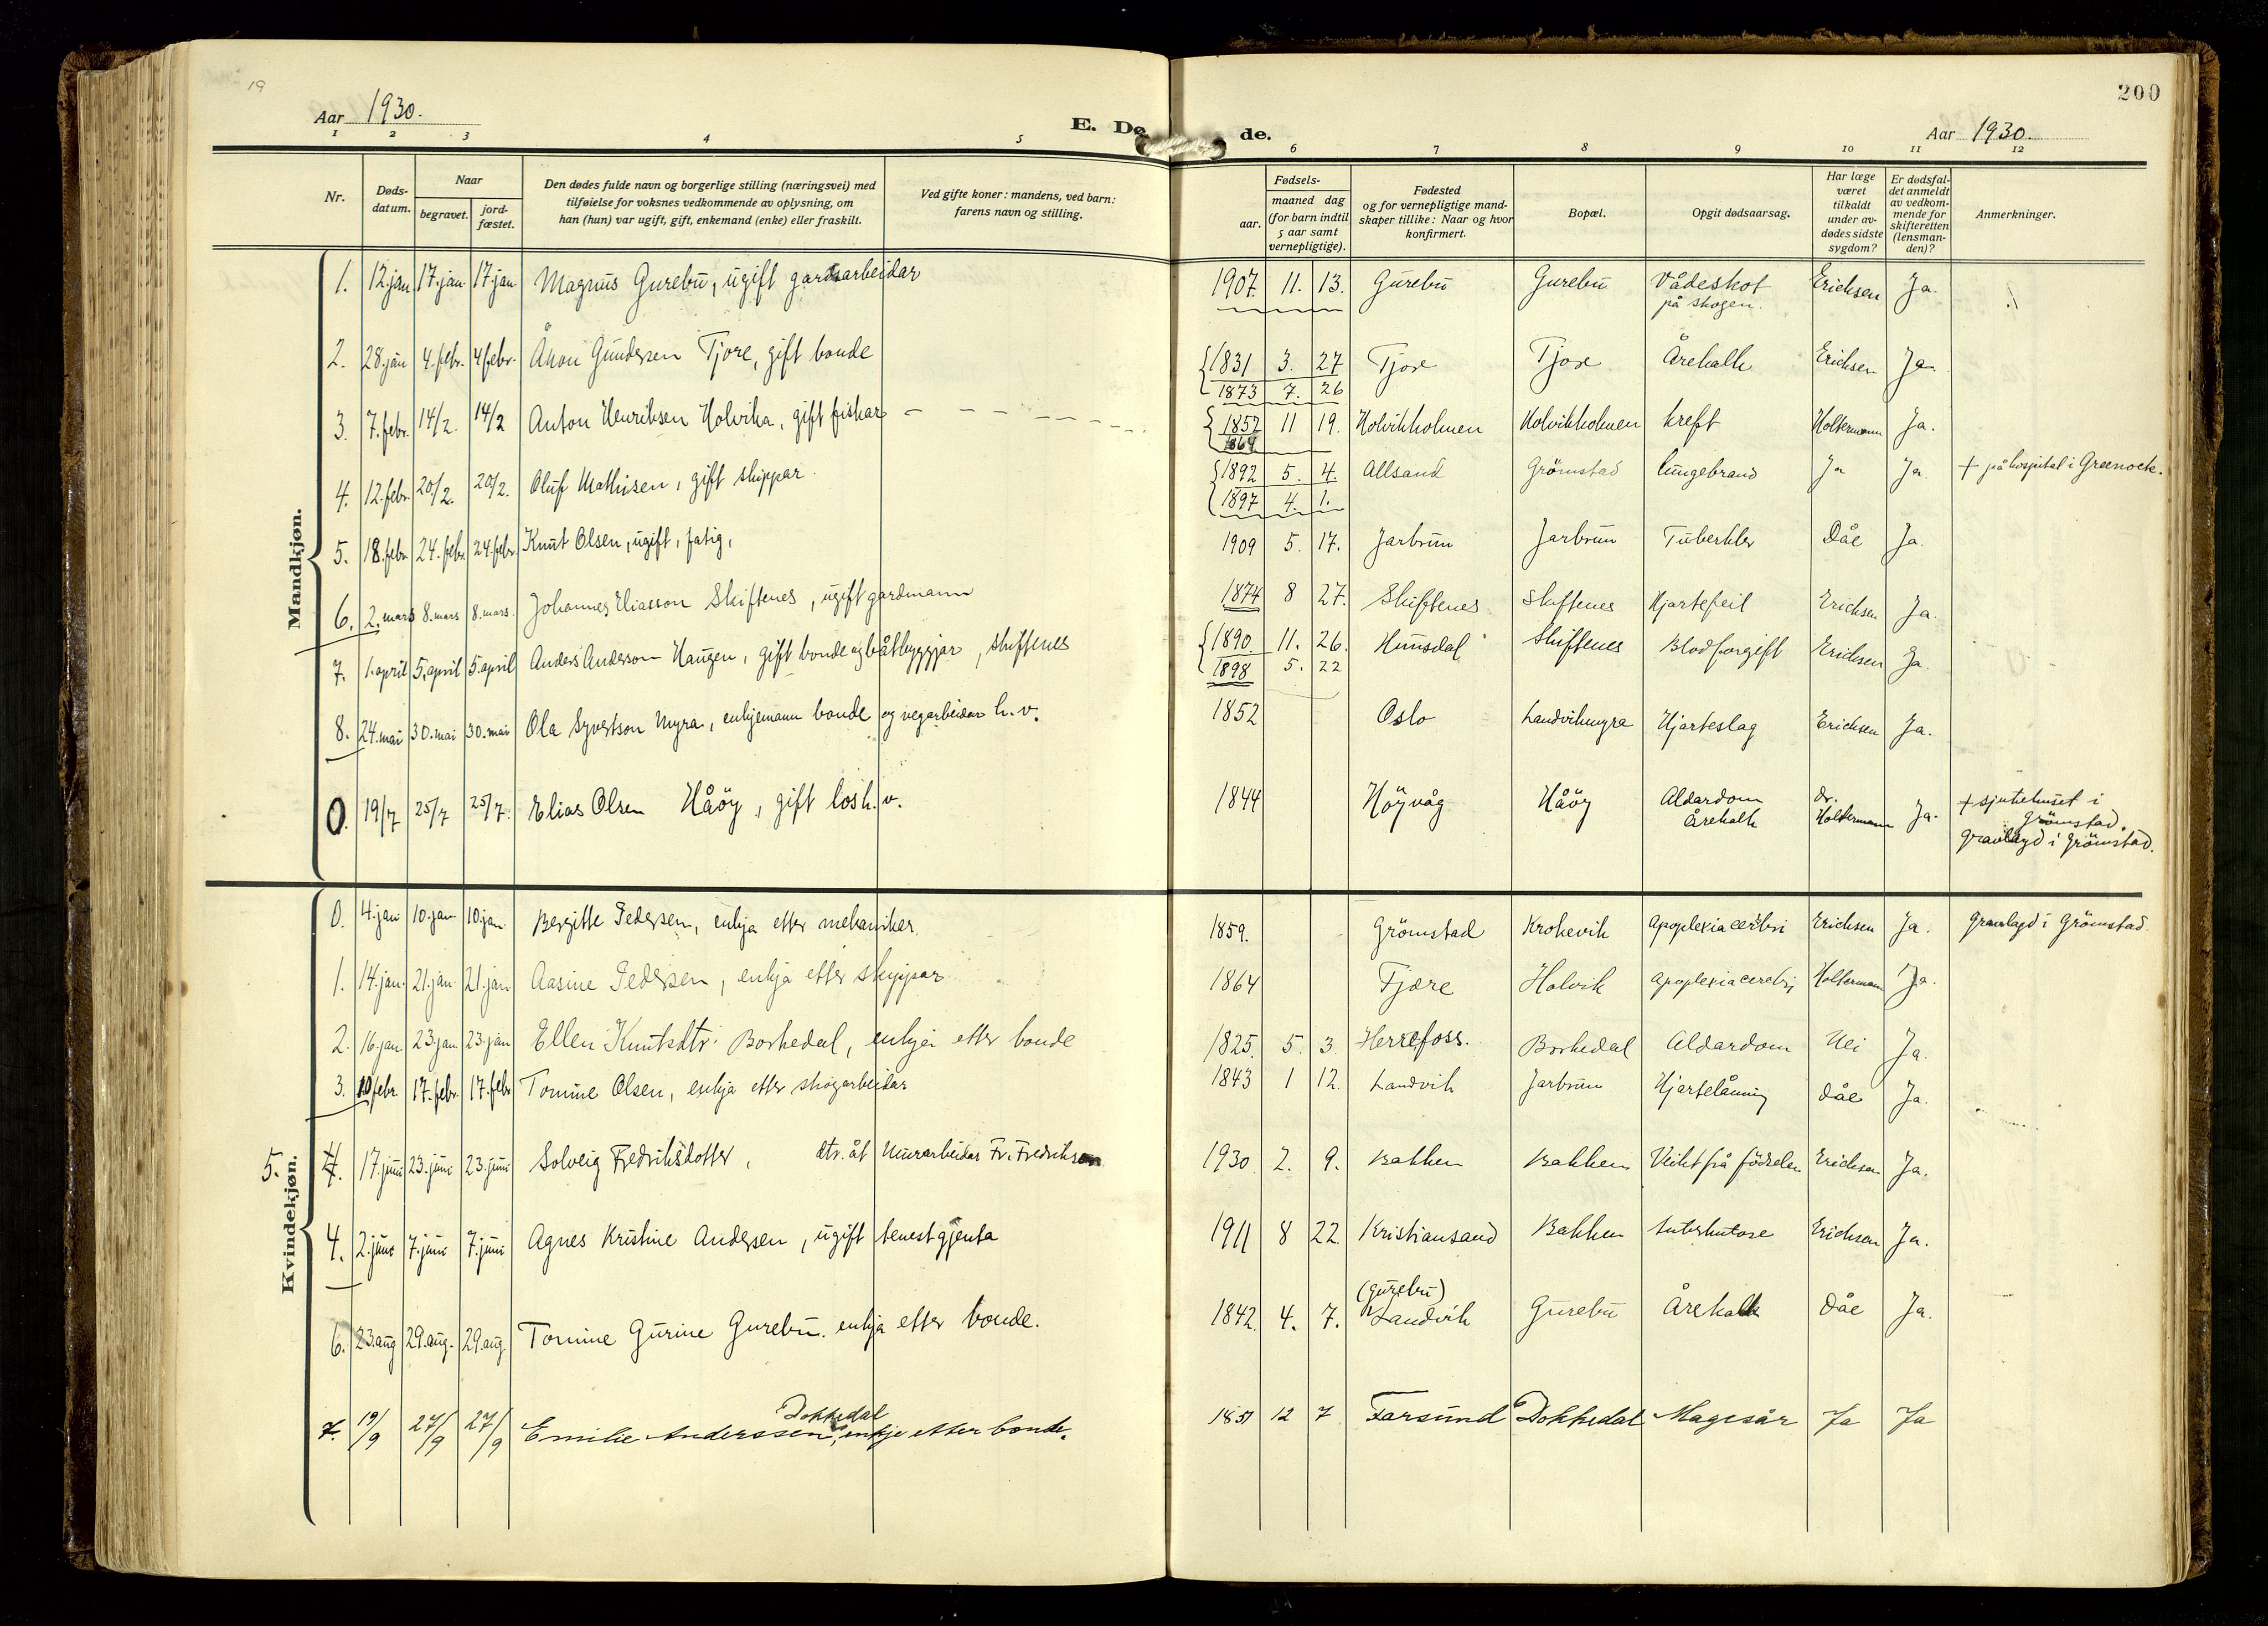 19
Aar 1930.
E. Dø de.
Aar 1930.
200
1 2 3 4 5 6 7 8 9 10 11 12
Nr.
Døds-
datum.
Naar
begravet.
jord-
fæstet.
Den dødes fulde navn og borgerlige stilling (næringsvei) med
tilføielse for voksnes vedkommende av oplysning, om
han (hun) var ugift, gift, enkemand (enke) eller fraskilt.
Ved gifte koner: mandens, ved barn:
farens navn og stilling.
Fødsels-
aar.
maaned dag
(for barn indtil
5 aar samt
vernepligtige).
Fødested
og for vernepligtige mand-
skaper tillike: Naar og hvor
konfirmert.
Bopæl.
Opgit dødsaarsag.
Har læge
været
tilkaldt
under av-
dødes sidste
sygdom?
Er dødsfal-
det anmeldt
av vedkom-
mende for
skifteretten
(lensman-
den)?
Anmerkninger.
Mandkjøn.
1. 12.jan 17.jan 17.jan Magnus Gurebu, ugift gardsarbeidar 1907. 11. 13. Gurebu Gurebu Vådeskot Erichsen Ja.
på skogen.
2. 28.jan 4.febr. 4 febr. Ånon Gundersen Tjore, gift bonde 1831 3. 27 Tjore Tjore Årekalk Erichsen Ja.
1873 7. 26
3. 7.febr. 14/2. 14/2 Anton Henriksen Holvika, gift fiskar 1852 11 19. Holvikholmen Holvikholmen kreft Holtermann Ja.
1864
4. 12.febr. 20/2. 20/2. Oluf Mathisen, gift skippar. 1892 5. 4. Allsand Grömstad lungebrand Ja Ja + på hospital i Greenock.
1897 4. 1.
5. 18.febr. 24.febr. 24.febr. Knut Olsen, ugift, fatig, 1909 5. 17. Jarbrun Jarbrun Tuberkler Dåe Ja.
6. 2.mars 8.mars 8.mars. Johannes Eliasson Skiftenes, ugift gardmann 1874 8 27. Skiftenes Skiftenes Hjartefeil Erichsen Ja.
7. 1.april 5.april 5.april Anders Anderson Haugen, gift bonde og båtbyggjar, skiftenes 1890. 11. 26. Humsdal Skiftenes Blodforgift Erichsen Ja.
1898 5. 22
8. 24.mai 30.mai 30.mai Ola Syvertson Myra, enkjemann bonde og vegarbeidar h.v. 1852 Oslo Landvikmyra Hjarteslag Erichsen Ja.
0. 19/7 25/7 25/7. Elias Olsen Håöy, gift los h.v. 1844 Höyvåg Håöy Aldardom Årekalk dr. Holtermann Ja. + sjukehuset i
Grömstad.
Gravlagd i Grömstad.
Kvindekjøn.
0. 4.jan 10.jan 10.jan. Bergitte Pedersen, enkja etter mekaniker. 1859. Grömstad Krokevik Apoplexia cerebri Erichsen Ja. Gravlagd i Grömstad.
1. 14.jan. 21.jan 21.jan Aasine Pedersen, enkja etter skippar 1864 Fjære Holvik Apoplexia cerebri Holtermann Ja.
2. 16.jan. 23.jan 23.jan Ellen Knutsdtr. Borkedal, enkja etter bonde 1825. 5. 3. Herrefoss. Borkedal Aldardom Nei Ja.
3. 10 febr. 17.febr. 17.febr Tomine Olsen, enkja etter skogarbeidar 1843 1 12. Landvik Jarbrun Hjartelåming Dåe Ja.
5. 4. 17.juni 23.juni 23.juni Solveig Fredriksdotter, dtr. åt Murarbeidar Fr. Fredrikson 1930. 2. 9. Bakken Bakken Veikt frå födselen Erichsen Ja.
4. 2.juni 7.juni 7.juni Agnes Kristine Andersen, ugift tenestgjenta 1911 8 22. Kristiansand Bakken tuberkulose Erichsen Ja.
(Gurebu)
6. 23.aug 29.aug. 29.aug. Tomine Gurine Gurebu. enkja etter bonde. 1842. 4. 7. Landvik Gurebu Årekalk Dåe Ja.
Dokkedal
7. 19/9 27/9 27/9 Emilie Anderssen, enkje etter bonde. 1851 12 7 Farsund Dokkedal Magesår Ja Ja